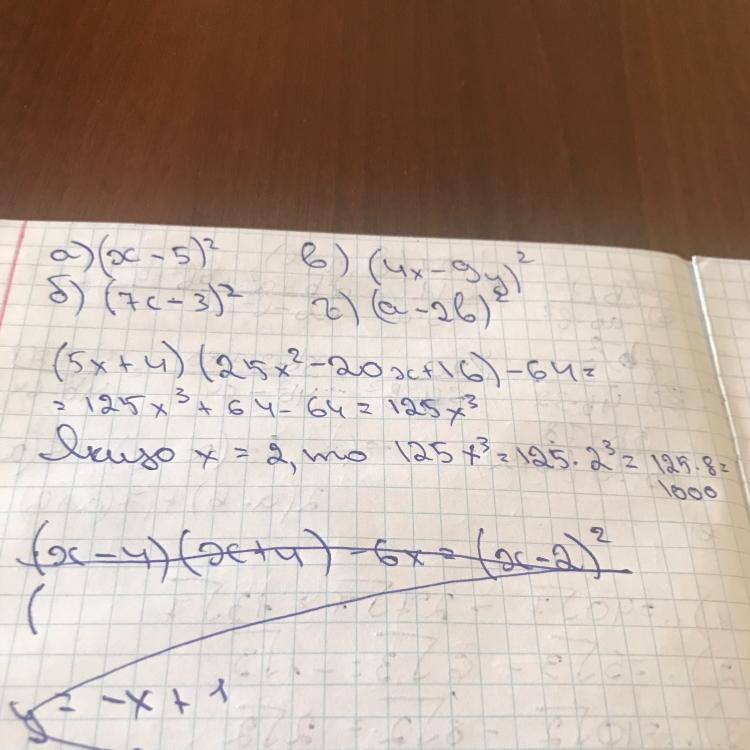 а) (x - 5)² в) (4x - 9y)²
б) (7c - 3)² г) (a - 2b)²
(5x + 4) (25x² - 20x + 16) - 64 =
= 125x³ + 64 - 64 = 125x³
Якщо x = 2, то 125x³ = 125 · 2³ = 125 · 8 =
1000
(x - 4) (x + 4) - 6x = (x - 2)²
(
y = -x + 1